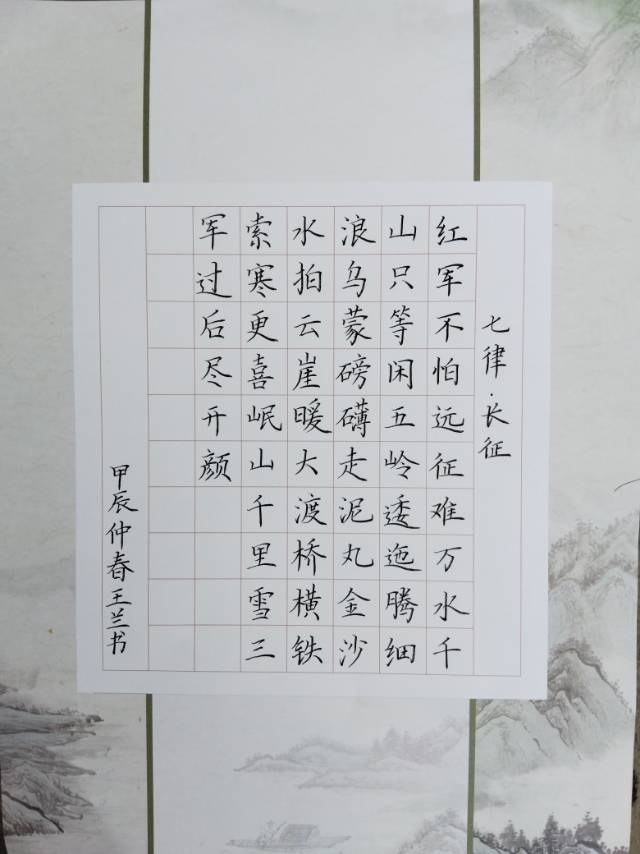 七律·长征
红军不怕远征难万水千
山只等闲五岭逶迤腾细
浪乌蒙磅礴走泥丸金沙
水拍云崖暖大渡桥横铁
索寒更喜岷山千里雪三
军过后尽开颜
甲辰仲春王兰书